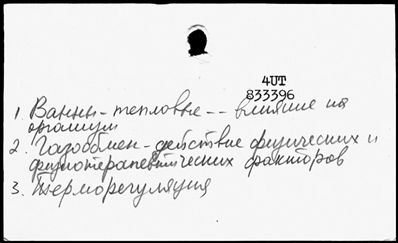 4UT
833396
1. Ванны - тепловые -- влияние на
организм
2. Газообмен - действие физических и
физиотерапевтических факторов
3. Терморегуляция